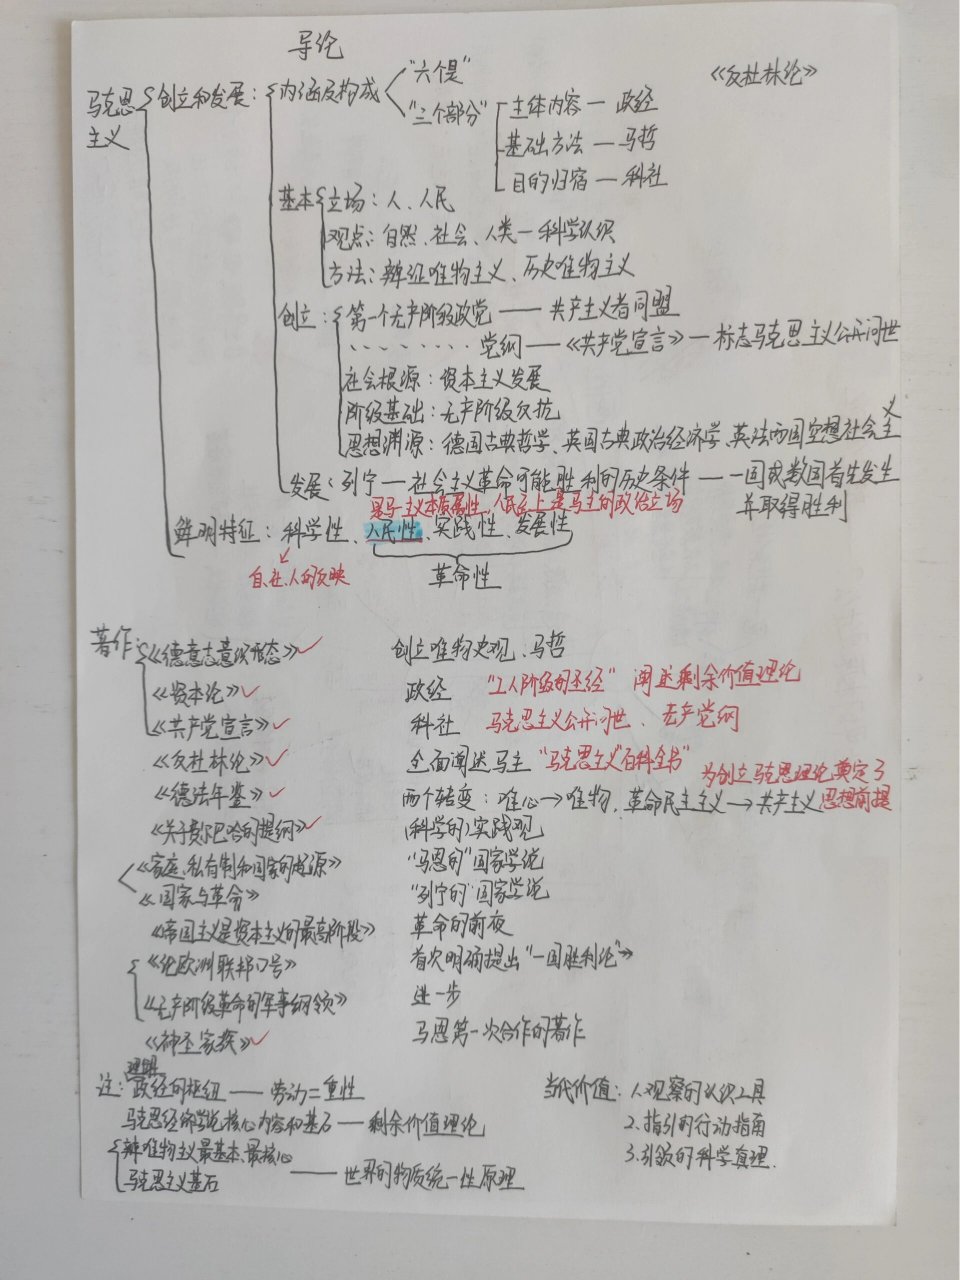 导论
马克思主义
创立和发展：
内涵及构成
"六个是"
《反杜林论》
"三个部分"
主体内容 — 政经
基础方法 — 马哲
目的归宿 — 科社
基本
立场：人、人民
观点：自然、社会、人类 — 科学认识
方法：辩证唯物主义、历史唯物主义
创立：
第一个无产阶级政党 —— 共产主义者同盟
........ 党纲 ——《共产党宣言》— 标志马克思主义公开问世
社会根源：资本主义发展
阶级基础：无产阶级反抗
思想渊源：德国古典哲学、英国古典政治经济学、英法两国空想社会主义
发展：列宁 — 社会主义革命可能胜利的历史条件 —— 一国或数国首先发生并取得胜利
是马主义本质属性，人民至上是马主的政治立场
鲜明特征：科学性、人民性、实践性、发展性
自、社、人的反映
革命性
著作：
《德意志意识形态》✓ 创立唯物史观、马哲
《资本论》✓ 政经 "工人阶级的圣经" 阐述剩余价值理论
《共产党宣言》✓ 科社 马克思主义公开问世、无产党纲
《反杜林论》✓ 全面阐述马主 "马克思主义百科全书"
《德法年鉴》✓ 两个转变：唯心→唯物，革命民主主义→共产主义 为创立马克思理论奠定了思想前提
《关于费尔巴哈的提纲》✓ (科学的)实践观
《家庭、私有制和国家的起源》 "马恩的"国家学说
《国家与革命》 "列宁的"国家学说
《帝国主义是资本主义的最高阶段》 革命的前夜
《论欧洲联邦口号》 首次明确提出"一国胜利论"
《无产阶级革命的军事纲领》 进一步
《神圣家族》✓ 马恩第一次合作的著作
注：
理解
政经的枢纽 —— 劳动二重性
马克思经济学说核心内容和基石 — 剩余价值理论
辩唯物主义最基本、最核心
马克思主义基石
—— 世界的物质统一性原理
当代价值：1.观察的认识工具
2.指引的行动指南
3.引领的科学真理.